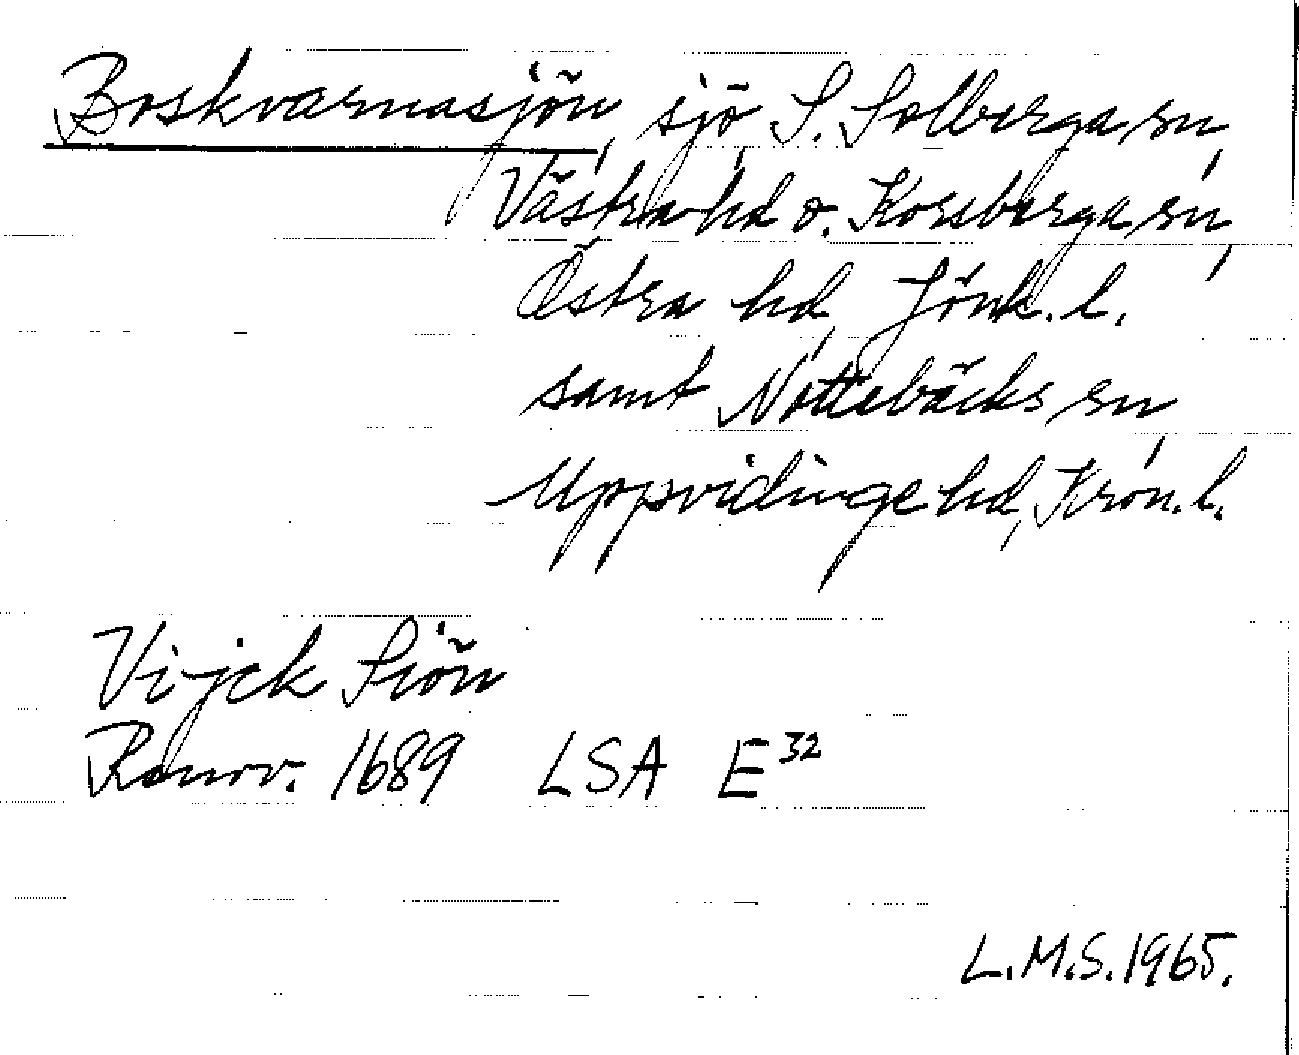 Boskvarnasjön, sjö S. Solberga sn,
Västra hd o. Korsberga sn,
Östra hd, Jönk. l.
samt Nottebäcks sn,
Uppvidinge hd, Kron. l.
Vijck Siön
Renov. 1689 LSA E 32
L.M.S. 1965.